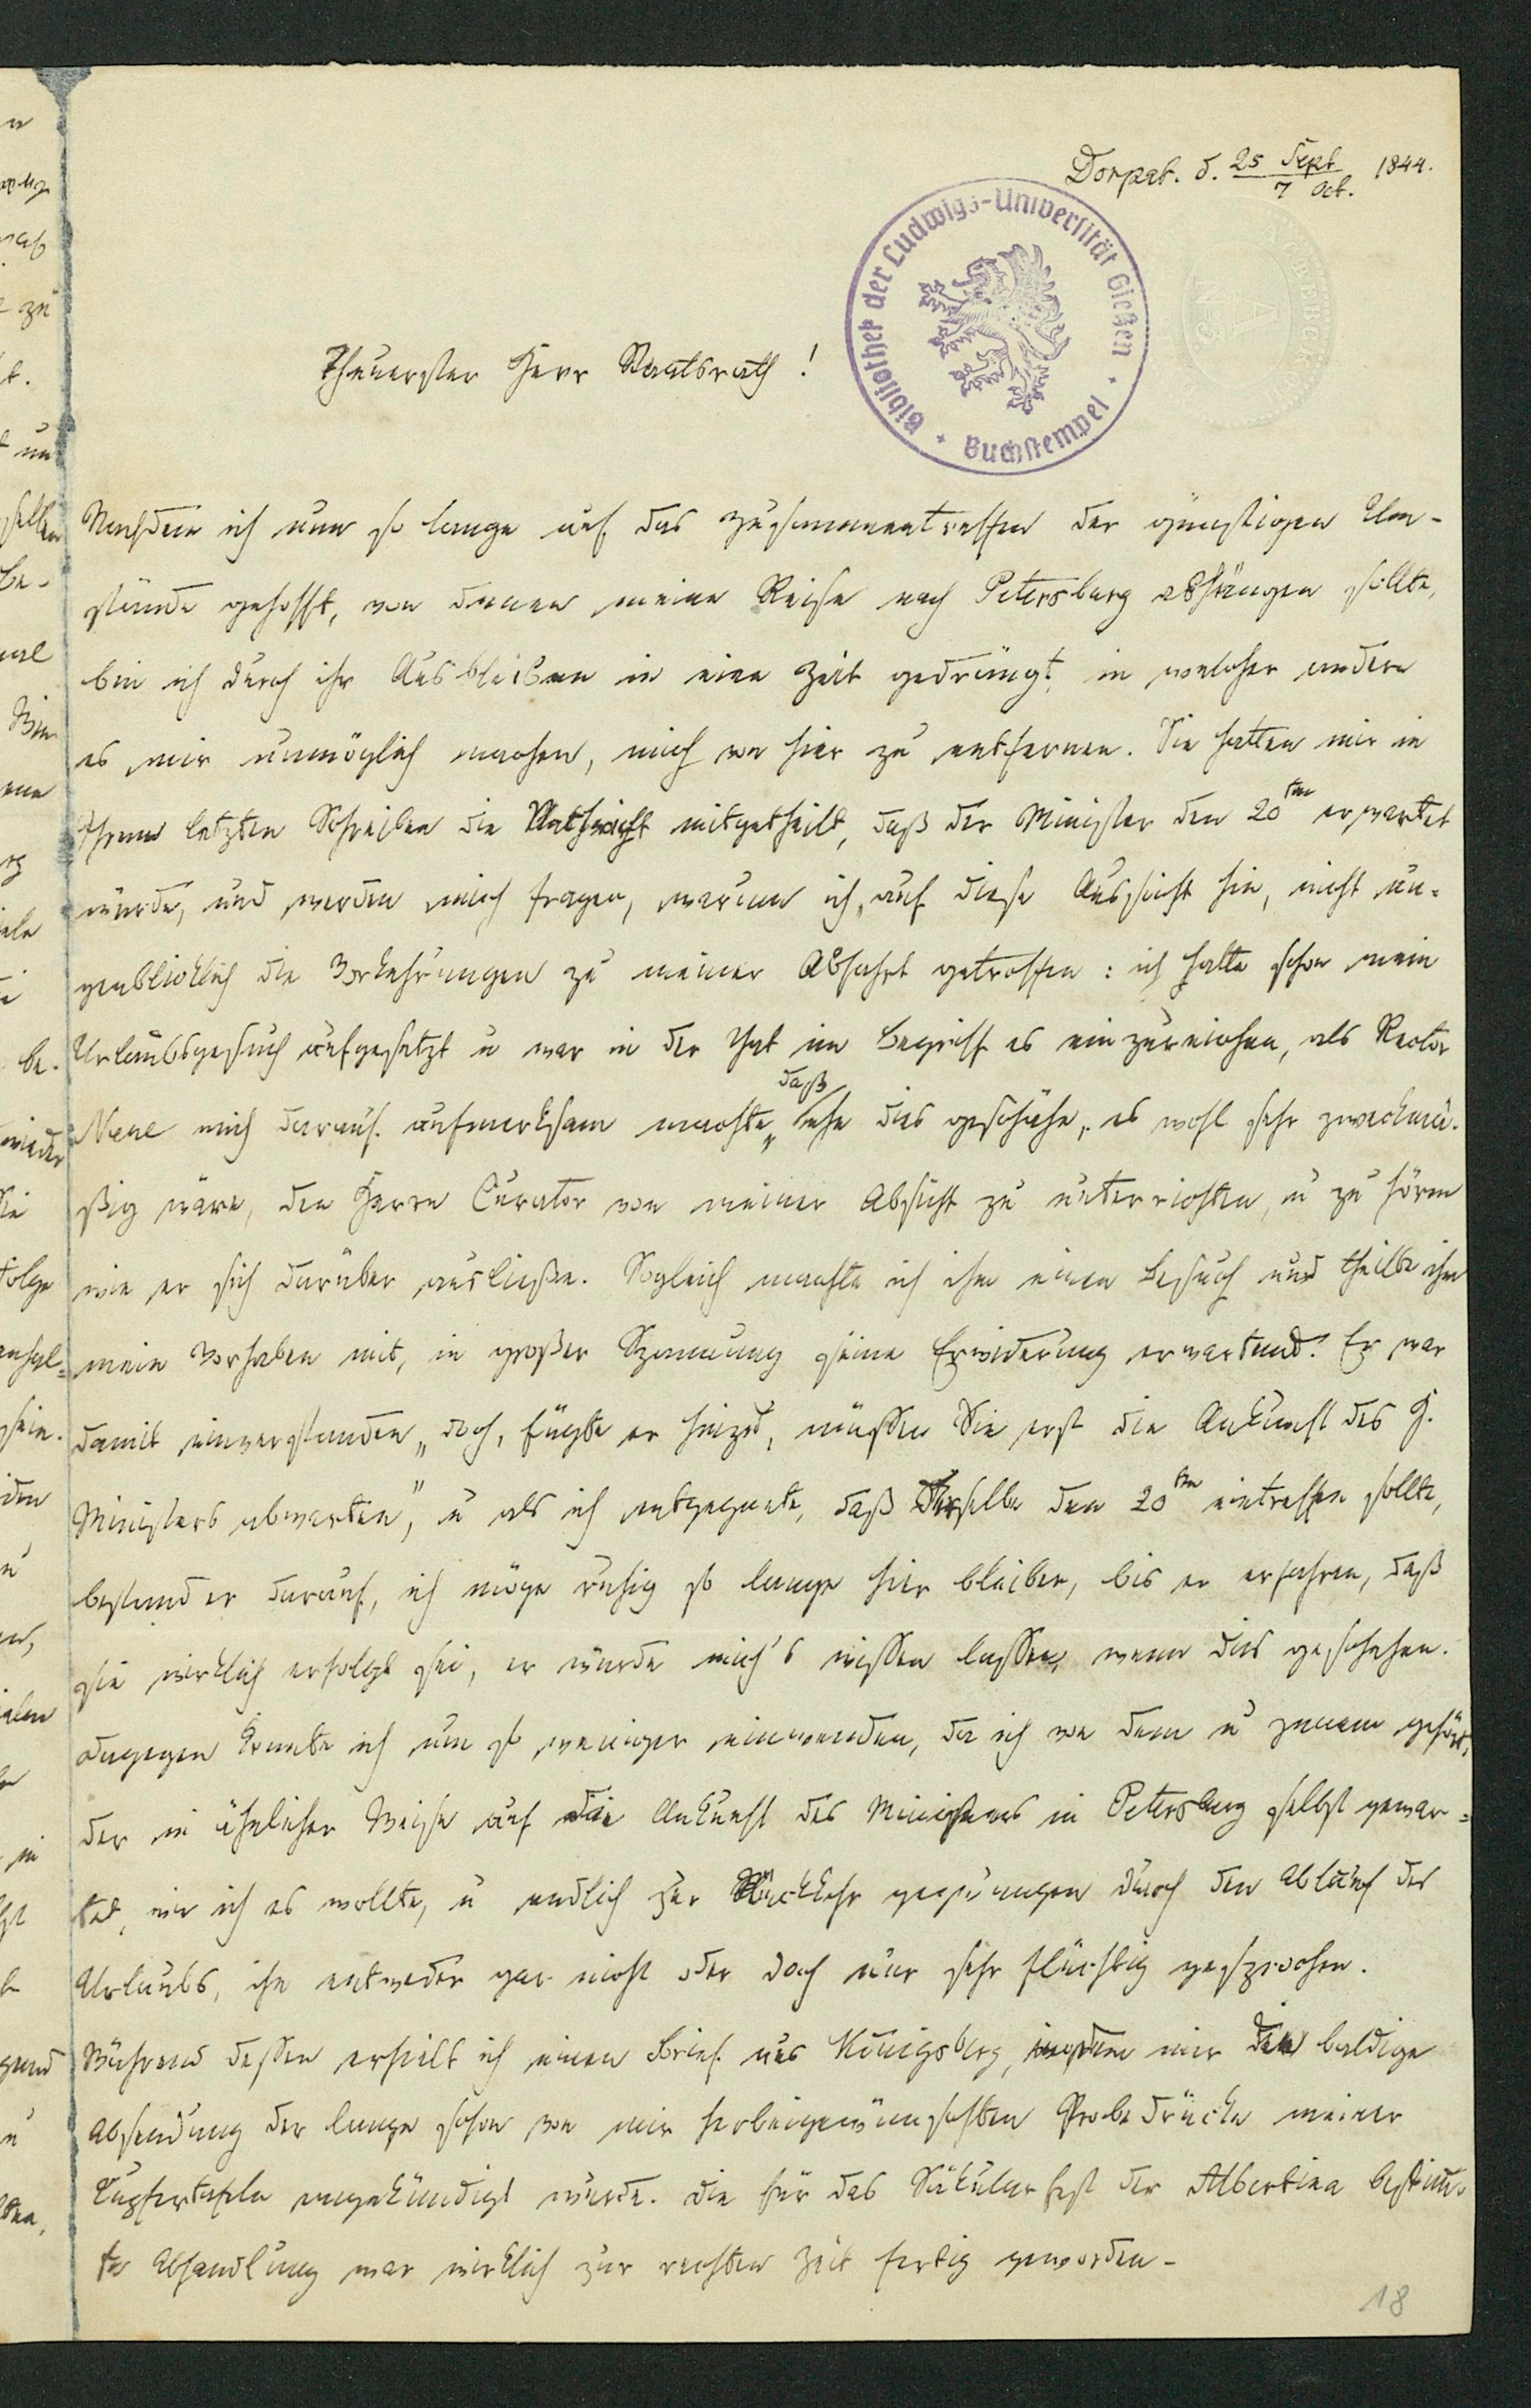 Dorpat. d. 25 Sept / 7 Oct. 1844.
Bibliothek der Ludwigs-Universität Gießen
Buchstempel
Theuerster Herr Staatsrath!
Nachdem ich nun so lange auf das Zusammentreffen der günstigen Um-
stände gehofft, von denen meine Reise nach Petersburg abhängen sollte,
bin ich durch ihr Ausbleiben in eine Zeit gedrängt, in welcher andere
es mir unmöglich machen, mich von hier zu entfernen. Sie hatten mir in
Ihrem letzten Schreiben die Nachricht mitgetheilt, daß der Minister den 20ten erwartet
würde, und werden mich fragen, warum ich, auf diese Aussicht hin, nicht au-
genblicklich die Vorkehrungen zu meiner Abfahrt getroffen: ich hatte schon mein
Urlaubsgesuch aufgesetzt u war in der That im Begriff es einzureichen, als Rector
Neue mich darauf aufmerksam machte, daß ehe dies geschähe, es wohl sehr zweckmä-
ßig wäre, den Herrn Curator von meiner Absicht zu unterrichten, u zu hören
wie er sich darüber ausließe. Sogleich machte ich ihm einen Besuch und theilte ihm
mein Vorhaben mit, in großer Spannung seine Erwiderung erwartend. Er war
damit einverstanden „doch, fügte er hinzu, müssen Sie erst die Ankunft des H.
Ministers abwarten," u als ich entgegnete, daß derselbe den 20ten eintreffen sollte,
bestand er darauf, ich möge ruhig so lange hier bleiben, bis er erfahren, daß
sie wirklich erfolgt sei, er würde mich's wissen lassen, wenn dies geschehen.
dagegen konnte ich um so weniger einwenden, da ich von dem u jenem gehört,
der in ähnlicher Weise auf die Ankunft des Ministers in Petersburg selbst gewar-
tet, wie ich es wollte, u endlich zur Rückkehr gezwungen durch den Ablauf des
Urlaubs, ihn entweder gar nicht oder doch nur sehr flüchtig gesprochen.
Während dessen erhielt ich einen Brief aus Königsberg, in dem mir die baldige
Absendung der lange schon von mir herbeigewünschten Probedrücke meiner
Kupfertafeln angekündigt wurde. die für das Säkularfest der Albertina bestimm-
te Abhandlung war wirklich zur rechten Zeit fertig geworden-
18